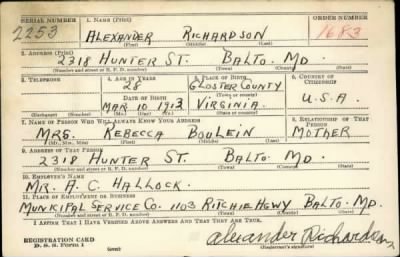 SERIAL NUMBER 1. NAME (Print) ORDER NUMBER
2253 ALEXANDER RICHARDSON 1683
(First) (Middle) (Last)
2. ADDRESS (Print)
2318 HUNTER ST. BALTO. MD.
(Number and street or R. F. D. number) (Town) (County) (State)
3. TELEPHONE 4. AGE IN YEARS 5. PLACE OF BIRTH 6. COUNTRY OF CITIZENSHIP
28 GLOSTER COUNTY
DATE OF BIRTH (Town or county)
MAR. 10 1912 VIRGINIA. U.S.A.
(Mo.) (Day) (Yr.) (State or country)
7. NAME OF PERSON WHO WILL ALWAYS KNOW YOUR ADDRESS 8. RELATIONSHIP OF THAT PERSON
MRS. REBECCA BOULEIN MOTHER
(Mr., Mrs., Miss) (First) (Middle) (Last)
9. ADDRESS OF THAT PERSON
2318 HUNTER ST. BALTO MD.
(Number and street or R. F. D. number) (Town) (County) (State)
10. EMPLOYER'S NAME
MR. A. C. HALLOCK.
11. PLACE OF EMPLOYMENT OR BUSINESS
MUNICIPAL SERVICE CO. 1103 RITCHIE HGWY BALTO. MD.
(Number and street or R. F. D. number) (Town) (County) (State)
I AFFIRM THAT I HAVE VERIFIED ABOVE ANSWERS AND THAT THEY ARE TRUE.
REGISTRATION CARD
D. S. S. Form 1 (over) Alexander Richardson
(Registrant's signature)